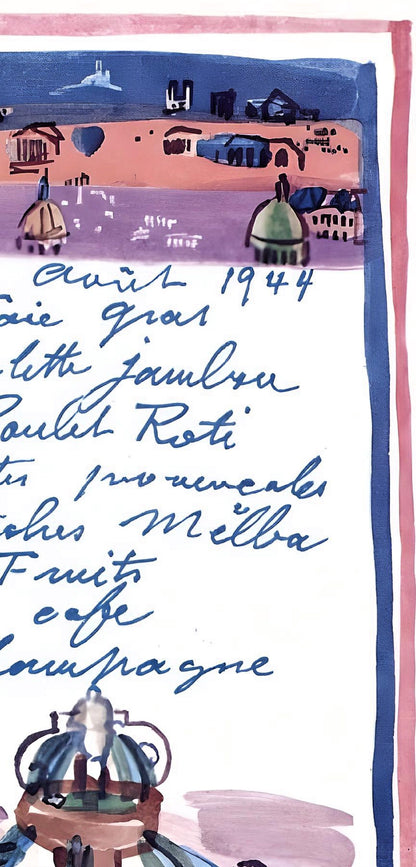 Août 1944
oie gras
lette jambon
Poulet Roti
tes provencales
ches Mëlba
Fruits
cafe
hampagne